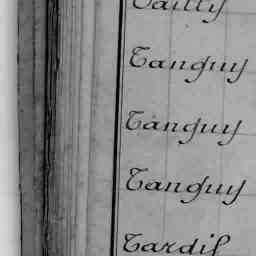 Tailly
Tanguy
Tanguy
Tanguy
Tardif